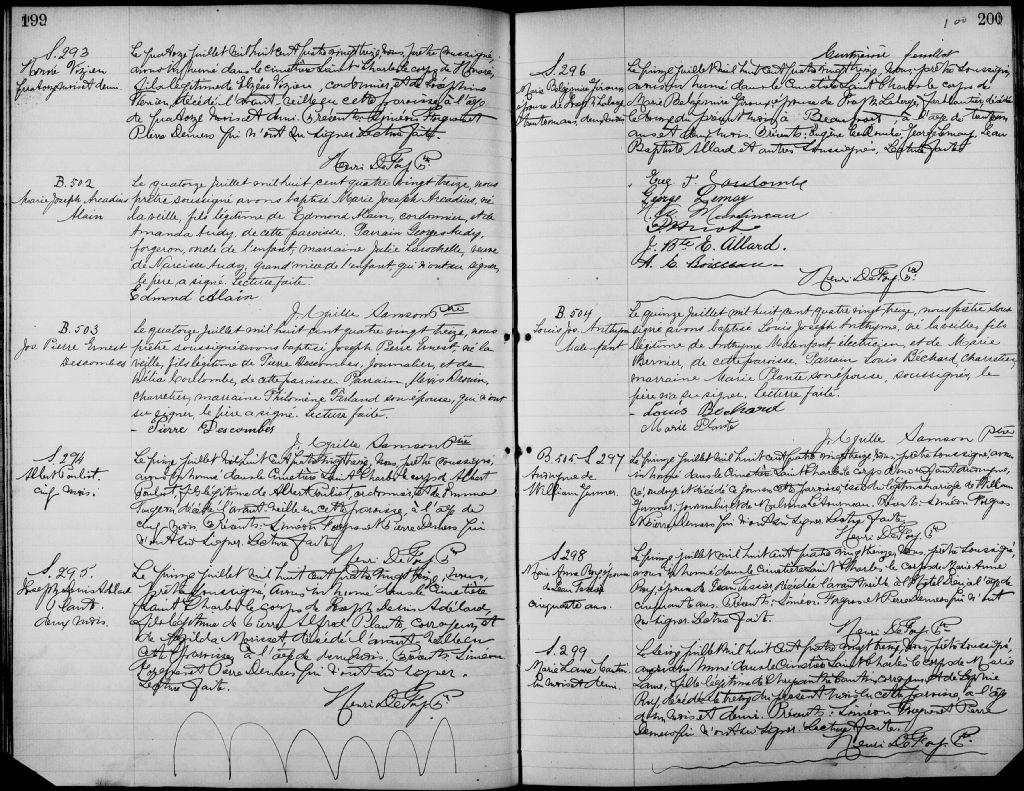 199
S. 293
Honoré Vézien
quatorze mois et demi.
Le quatorze juillet mil huit cent quatre vingt treize, nous, prêtre soussigné,
avons inhumé dans le cimetière Saint Charles le corps de Honoré,
fils légitime de Elzéar Vézien, cordonnier, et de Joséphine
décédé l'avant veille en cette paroisse, à l'âge
de quatorze mois et demi. Présents: Siméon Forgues et
Pierre Demers qui n'ont su signer. Lecture faite.
Henri DeFoy, Ptre
B. 502
Marie Joseph Arcadius
Alain
Le quatorze Juillet mil huit cent quatre vingt treize, nous
prêtre soussigné avons baptisé Marie Joseph Arcadius, né
la veille, fils légitime de Edmond Alain, cordonnier, et de
Amanda Audy, de cette paroisse. Parrain Georges Audy,
forgeron, oncle de l'enfant, marraine Julie Larochelle, veuve
de Narcisse Audy, grand'mère de l'enfant, qui n'ont su signer,
le père a signé. Lecture faite.
Edmond Alain
J. Achille Samson Ptre
B. 503
Jos. Pierre Ernest
Descombes
Le quatorze Juillet mil huit cent quatre vingt treize, nous
prêtre soussigné avons baptisé Joseph Pierre Ernest, né la
veille, fils légitime de Pierre Descombes, Journalier, et de
Délia Coulombe, de cette paroisse. Parrain, Alexis Drouin,
charretier, marraine Philomène Ferland son épouse, qui n'ont
su signer, le père a signé. Lecture faite.
- Pierre Descombes
J. Achille Samson Ptre
S. 294
Albert Pouliot
cinq mois.
Le quinze juillet mil huit cent quatre vingt treize, nous prêtre soussigné,
avons inhumé dans le cimetière Saint Charles le corps d'Albert
Pouliot, fils légitime de Albert Pouliot, cordonnier, et de Emma
décédé l'avant veille en cette paroisse, à l'âge de
cinq mois. Présents: Siméon Forgues et Pierre Demers qui
n'ont su signer. Lecture faite.
Henri DeFoy, Ptre
S. 295.
Joseph Désiré Adélard
Plante
deux mois.
Le quinze juillet mil huit cent quatre vingt treize, nous,
prêtre soussigné, avons inhumé dans le Cimetière
Saint Charles le corps de Joseph Désiré Adélard,
fils légitime de Pierre Alfred Plante, corroyeur, et
de Exilda Morisset décédé l'avant veille en
cette paroisse, à l'âge de deux mois. Présents: Siméon
Forgues et Pierre Demers qui n'ont su signer.
Lecture faite.
Henri DeFoy, Ptre
1 00
200
S. 296
Marie Belzémire Giroux
épouse de Joseph Laberge
trente ans, deux mois
Le quinze juillet mil huit cent quatre vingt treize, nous prêtre soussigné,
avons inhumé dans le Cimetière Saint Charles le corps de
Marie Belzémire Giroux épouse de Joseph Laberge, ferblantier, décédée
le douze du présent mois, à Beauport, à l'âge de trente
ans et deux mois. Présents: Eugène Coulombe, George Lemay, Jean
Baptiste Allard et autres soussignés. Lecture faite.
Eug. J. Coulombe
George Lemay
J. Bte E. Allard.
A. E. Boisseau
Henri DeFoy, Ptre
B. 504
Louis Jos. Anthyme
Malenfant
Le quinze Juillet mil huit cent quatre vingt treize, nous prêtre sous-
signé avons baptisé Louis Joseph Anthyme, né la veille, fils
légitime de Anthyme Malenfant électricien, et de Marie
Bernier, de cette paroisse. Parrain Louis Béchard, charretier,
marraine Marie Plante son épouse, soussignés, le
père n'a su signer. Lecture faite.
- Louis Bechard
Marie Plante
J. Achille Samson Ptre
B. 505 - S. 297
Anonyme de
William
Le quinze juillet mil huit cent quatre vingt treize, nous, prêtre soussigné, avons
inhumé dans le Cimetière Saint Charles le corps d'un enfant anonyme,
né, ondoyé et décédé ce jour en cette paroisse, issu du légitime mariage de William
journalier, et de Malvina Létourneau. Présents: Siméon Forgues
et Pierre Demers qui n'ont su signer. Lecture faite.
Henri DeFoy, Ptre
S. 298
Marie Anne Roy, épouse
de Jean Tessier
cinquante ans.
Le quinze juillet mil huit cent quatre vingt treize, nous, prêtre soussigné,
avons inhumé dans le Cimetière Saint Charles, le corps de Marie Anne
Roy, épouse de Jean Tessier, décédée l'avant veille à l'Hôtel Dieu, à l'âge de
cinquante ans. Présents: Siméon Forgues et Pierre Demers qui n'ont
su signer. Lecture faite.
Henri DeFoy, Ptre
S. 299
Marie Laure Cantin
un mois et demi.
Le seize juillet mil huit cent quatre vingt treize, nous, prêtre soussigné,
avons inhumé dans le Cimetière Saint Charles le corps de Marie
Laure, fille légitime de Chrysanthe Cantin, corroyeur, et de Sophie
Roy, décédée le treize du présent mois en cette paroisse, à l'âge
d'un mois et demi. Présents: Siméon Forgues et Pierre
Demers qui n'ont su signer. Lecture faite.
Henri DeFoy, Ptre